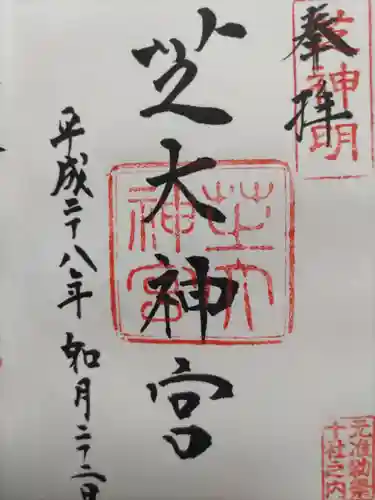 奉拝
芝神明
芝大神宮
芝大神宮
平成二十八年如月二十二日
元准勅祭
十社之内